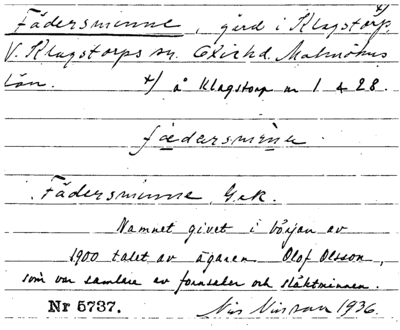 Fädersminne, gård i Klagstorp, x)
V. Klagstorps sn. Oxie hd. Malmöhus
län. x) å Klagstorp nr 1 & 28.
fædersmine
Fädersminne, Gek.
Namnet givet i början av
1900 talet av ägaren Olof Olsson,
som var samlare av fornsaker och släktminnen.
Nr 5737. Nils Nilsson 1936.